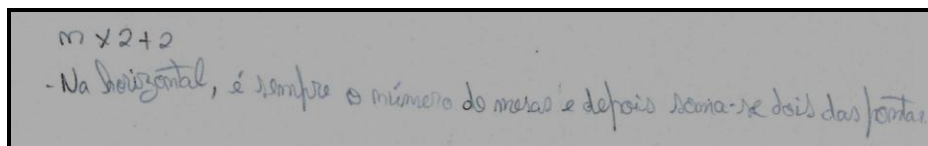 n x 2 + 2
- Na horizontal, é sempre o número de mesas e depois soma-se dois das pontas